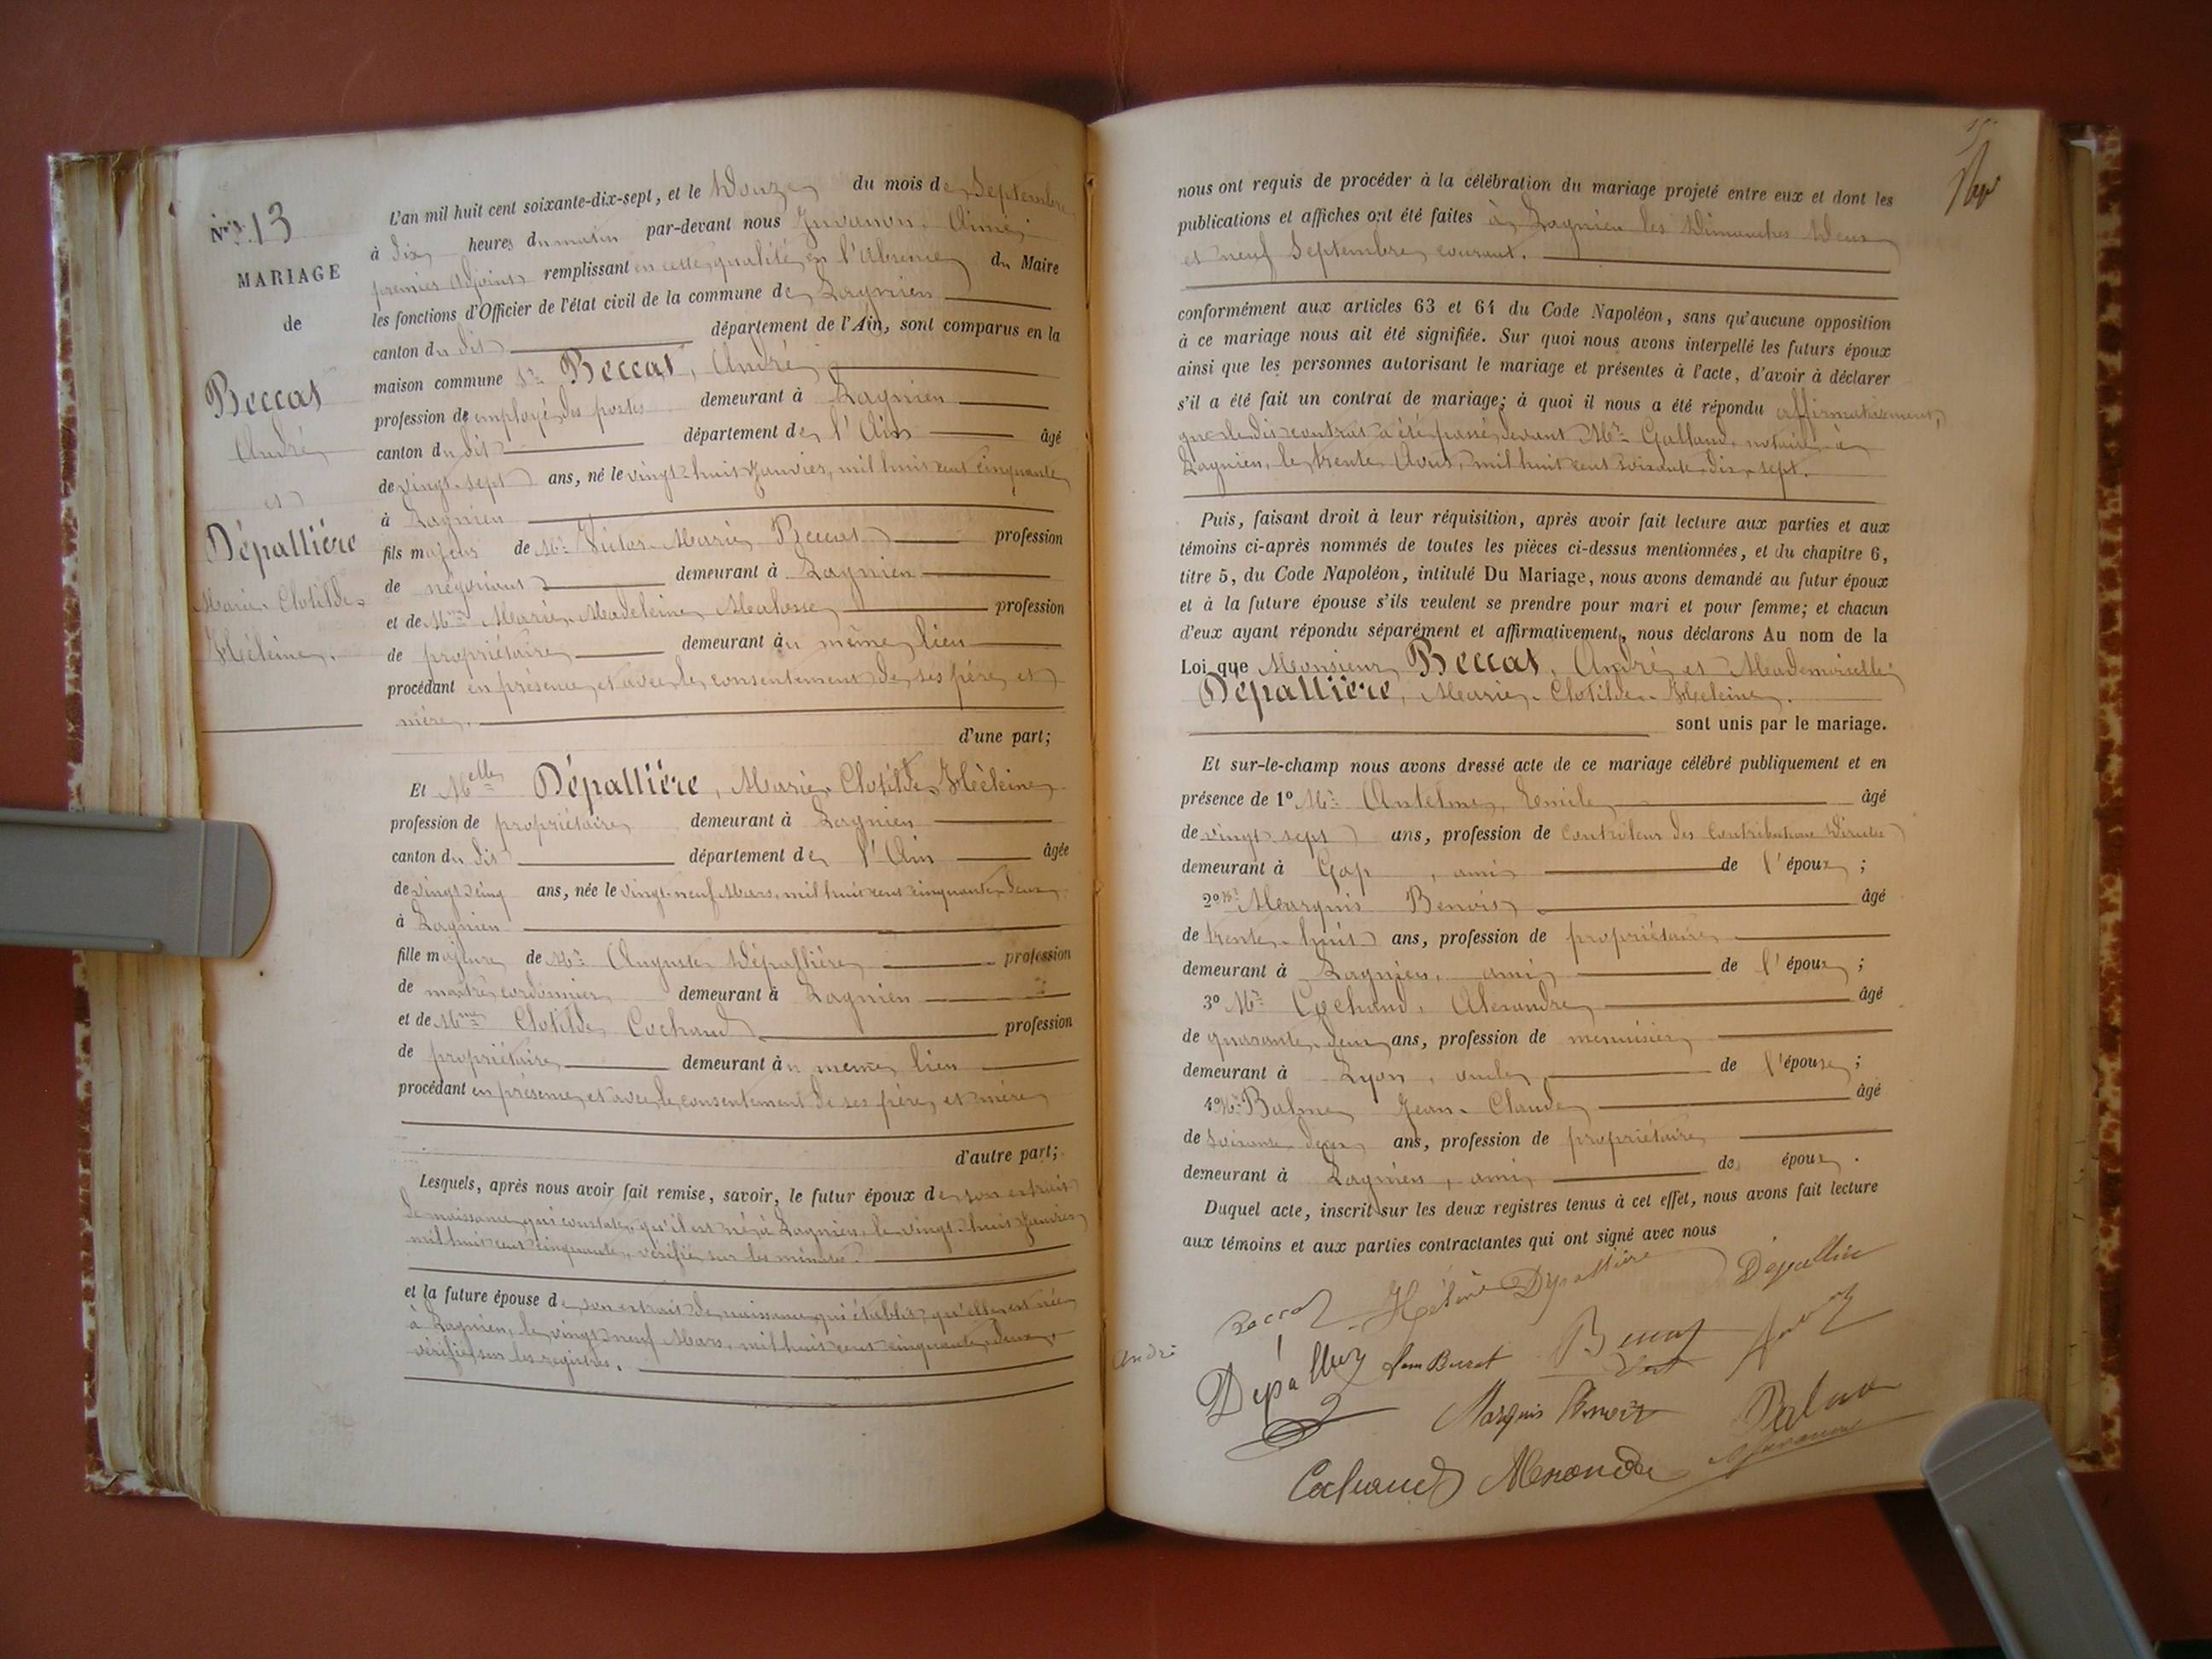 N° 13
MARIAGE
de
Beccat
André
et
Dépallière
Marie-Clotilde-
Hèleine.
L'an mil huit cent soixante-dix-sept, et le Douze du mois de Septembre
à dix heures du matin par-devant nous Juvanon, Aimé,
premier Adjoint remplissant en cette qualité en l'absence du Maire
les fonctions d'Officier de l'état civil de la commune de Lagnieu
canton du dit département de l'Ain, sont comparus en la
maison commune Beccat, André
profession de employé des postes demeurant à Lagnieu
canton du dit département de l'Ain âgé
de vingt-sept ans, né le vingt-huit Janvier, mil huit cent cinquante
à Lagnieu
fils majeur de Mr Victor-Marie Beccat profession
de négociant demeurant à Lagnieu
et de Mme Marie-Madeleine Malosse profession
de propriétaire demeurant au même lieu
procédant en présence et avec le consentement de ses père et
mère.
d'une part;
Et Melle Dépallière, Marie-Clotilde-Hèleine
profession de propriétaire demeurant à Lagnieu
canton du dit département de l'Ain âgée
de vingt cinq ans, née le vingt-neuf Mars, mil huit cent cinquante-deux
à Lagnieu
fille majeure de Mr Auguste Dépallière profession
de maître cordonnier demeurant à Lagnieu
et de Mme Clotilde Cochand profession
de propriétaire demeurant au même lieu
procédant en présence et avec le consentement de ses père et mère
d'autre part;
Lesquels, après nous avoir fait remise, savoir, le futur époux de son extrait
de naissance qui constate qu'il est né à Lagnieu le vingt-huit Janvier
mil huit cent cinquante, vérifié sur les minutes.
et la future épouse de son extrait de naissance qui établit qu'elle est née
à Lagnieu, le vingt-neuf Mars, mil huit cent cinquante-deux,
vérifié sur les registres.
nous ont requis de procéder à la célébration du mariage projeté entre eux et dont les
publications et affiches ont été faites à Lagnieu les Dimanches Deux
et neuf Septembre courant.
conformément aux articles 63 et 64 du Code Napoléon, sans qu'aucune opposition
à ce mariage nous ait été signifiée. Sur quoi nous avons interpellé les futurs époux
ainsi que les personnes autorisant le mariage et présentes à l'acte, d'avoir à déclarer
s'il a été fait un contrat de mariage; à quoi il nous a été répondu affirmativement,
que le dit contrat a été passé devant Mr Galland notaire à
Lagnieu, le trente Août, mil huit cent soixante-dix-sept.
Puis, faisant droit à leur réquisition, après avoir fait lecture aux parties et aux
témoins ci-après nommés de toutes les pièces ci-dessus mentionnées, et du chapitre 6,
titre 5, du Code Napoléon, intitulé Du Mariage, nous avons demandé au futur époux
et à la future épouse s'ils veulent se prendre pour mari et pour femme; et chacun
d'eux ayant répondu séparément et affirmativement, nous déclarons Au nom de la
Loi que Monsieur Beccat, André et Mademoiselle
Dépallière, Marie-Clotilde-Hèleine.
sont unis par le mariage.
Et sur-le-champ nous avons dressé acte de ce mariage célébré publiquement et en
présence de 1° Mr Antelme, Emile âgé
de vingt sept ans, profession de Contrôleur des Contributions Directes
demeurant à Gap, ami de l'époux;
2° Mr Marquis Benoit âgé
de trente-huit ans, profession de propriétaire
demeurant à Lagnieu, ami de l'époux;
3° Mr Cochand, Alexandre âgé
de quarante-deux ans, profession de menuisier
demeurant à Lyon, oncle de l'épouse;
4° Mr Balme Jean-Claude âgé
de soixante-deux ans, profession de propriétaire
demeurant à Lagnieu, ami de époux.
Duquel acte, inscrit sur les deux registres tenus à cet effet, nous avons fait lecture
aux témoins et aux parties contractantes qui ont signé avec nous
Beccat Hélène Dépallière Dépallière
André
Dépallière Beccat
Marquis Benoit Balme
Cochand Alexandre Juvanon